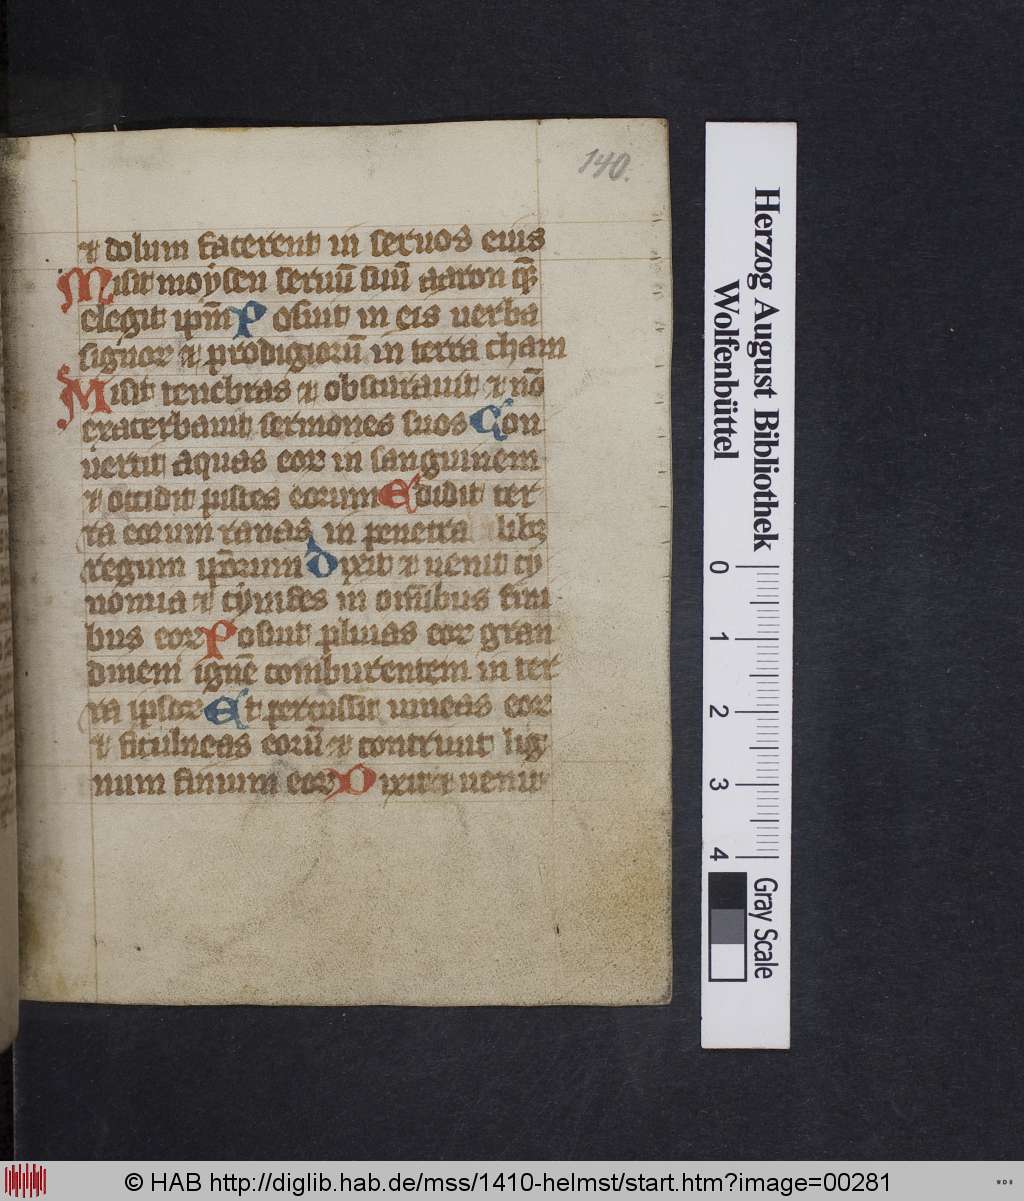 140.
et dolum facerent in seruos eius
Misit moysen seruū suū aaron quē
elegit ipm̄ Posuit in eis uerba
signor et prodigiorū in terra cham
Misit tenebras et obscurauit et nō
exacerbauit sermones suos Con
uertit aquas eor in sanguinem
et occidit pisces eorum Edidit ter
ra eorum ranas in penetralibꝫ
regum ip̄orum Dixit et uenit cy
nomia et cynifes in om̄ibus fini
bus eor Posuit pluuias eor gran
dinem ignē comburentem in ter
ra ipsor Et percussit uineas eor
et ficulneas eorū et contriuit lig
num finium eor Dixit et uenit
Herzog August Bibliothek
Wolfenbüttel
0 1 2 3 4
Gray Scale
© HAB http://diglib.hab.de/mss/1410-helmst/start.htm?image=00281